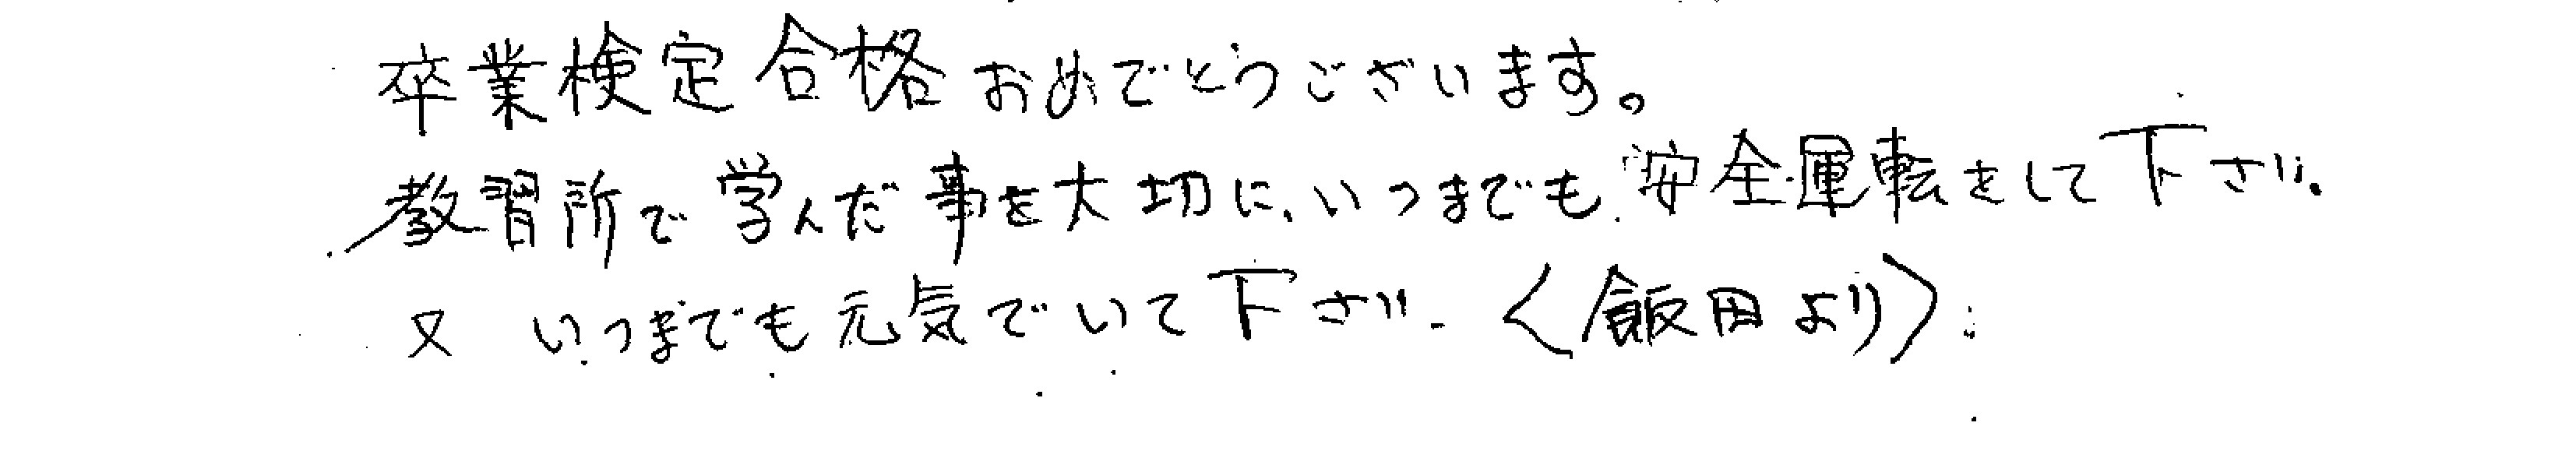 卒業検定合格おめでとうございます。
教習所で学んだ事を大切に、いつまでも安全運転をして下さい。
又 いつまでも元気でいて下さい。〈飯田より〉